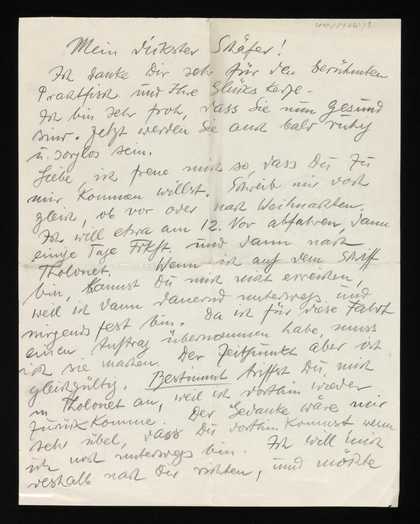 Mein liebster Schäfer!
Ich danke Dir sehr für den berühmten
Prachtfisch und Ihre Glückskerze.
Ich bin sehr froh, dass Sie nun gesund
sind. Jetzt werden Sie auch bald ruhig
u. sorglos sein.
Liebe, ich freue mich so, dass Du zu
mir kommen willst. Schreib mir doch
gleich, ob vor oder nach Weihnachten.
Ich will etwa am 12. Nov abfahren, dann
einige Tage Frkft, und dann nach
Tholonet. Wenn ich auf dem Schiff
bin, kannst Du mich nicht erreichen,
weil ich dann dauernd unterwegs und
nirgends fest bin. Da ich für diese Fahrt
einen Auftrag übernommen habe, muss
ich sie machen. Der Zeitpunkt aber ist
gleichgültig. Bestimmt triffst Du mich
in Tholonet an, weil ich dorthin wieder
zurückkomme. Der Gedanke wäre mir
sehr übel, dass Du dorthin kommst wenn
ich noch unterwegs bin. Ich will mich
deshalb nach Dir richten, und möchte